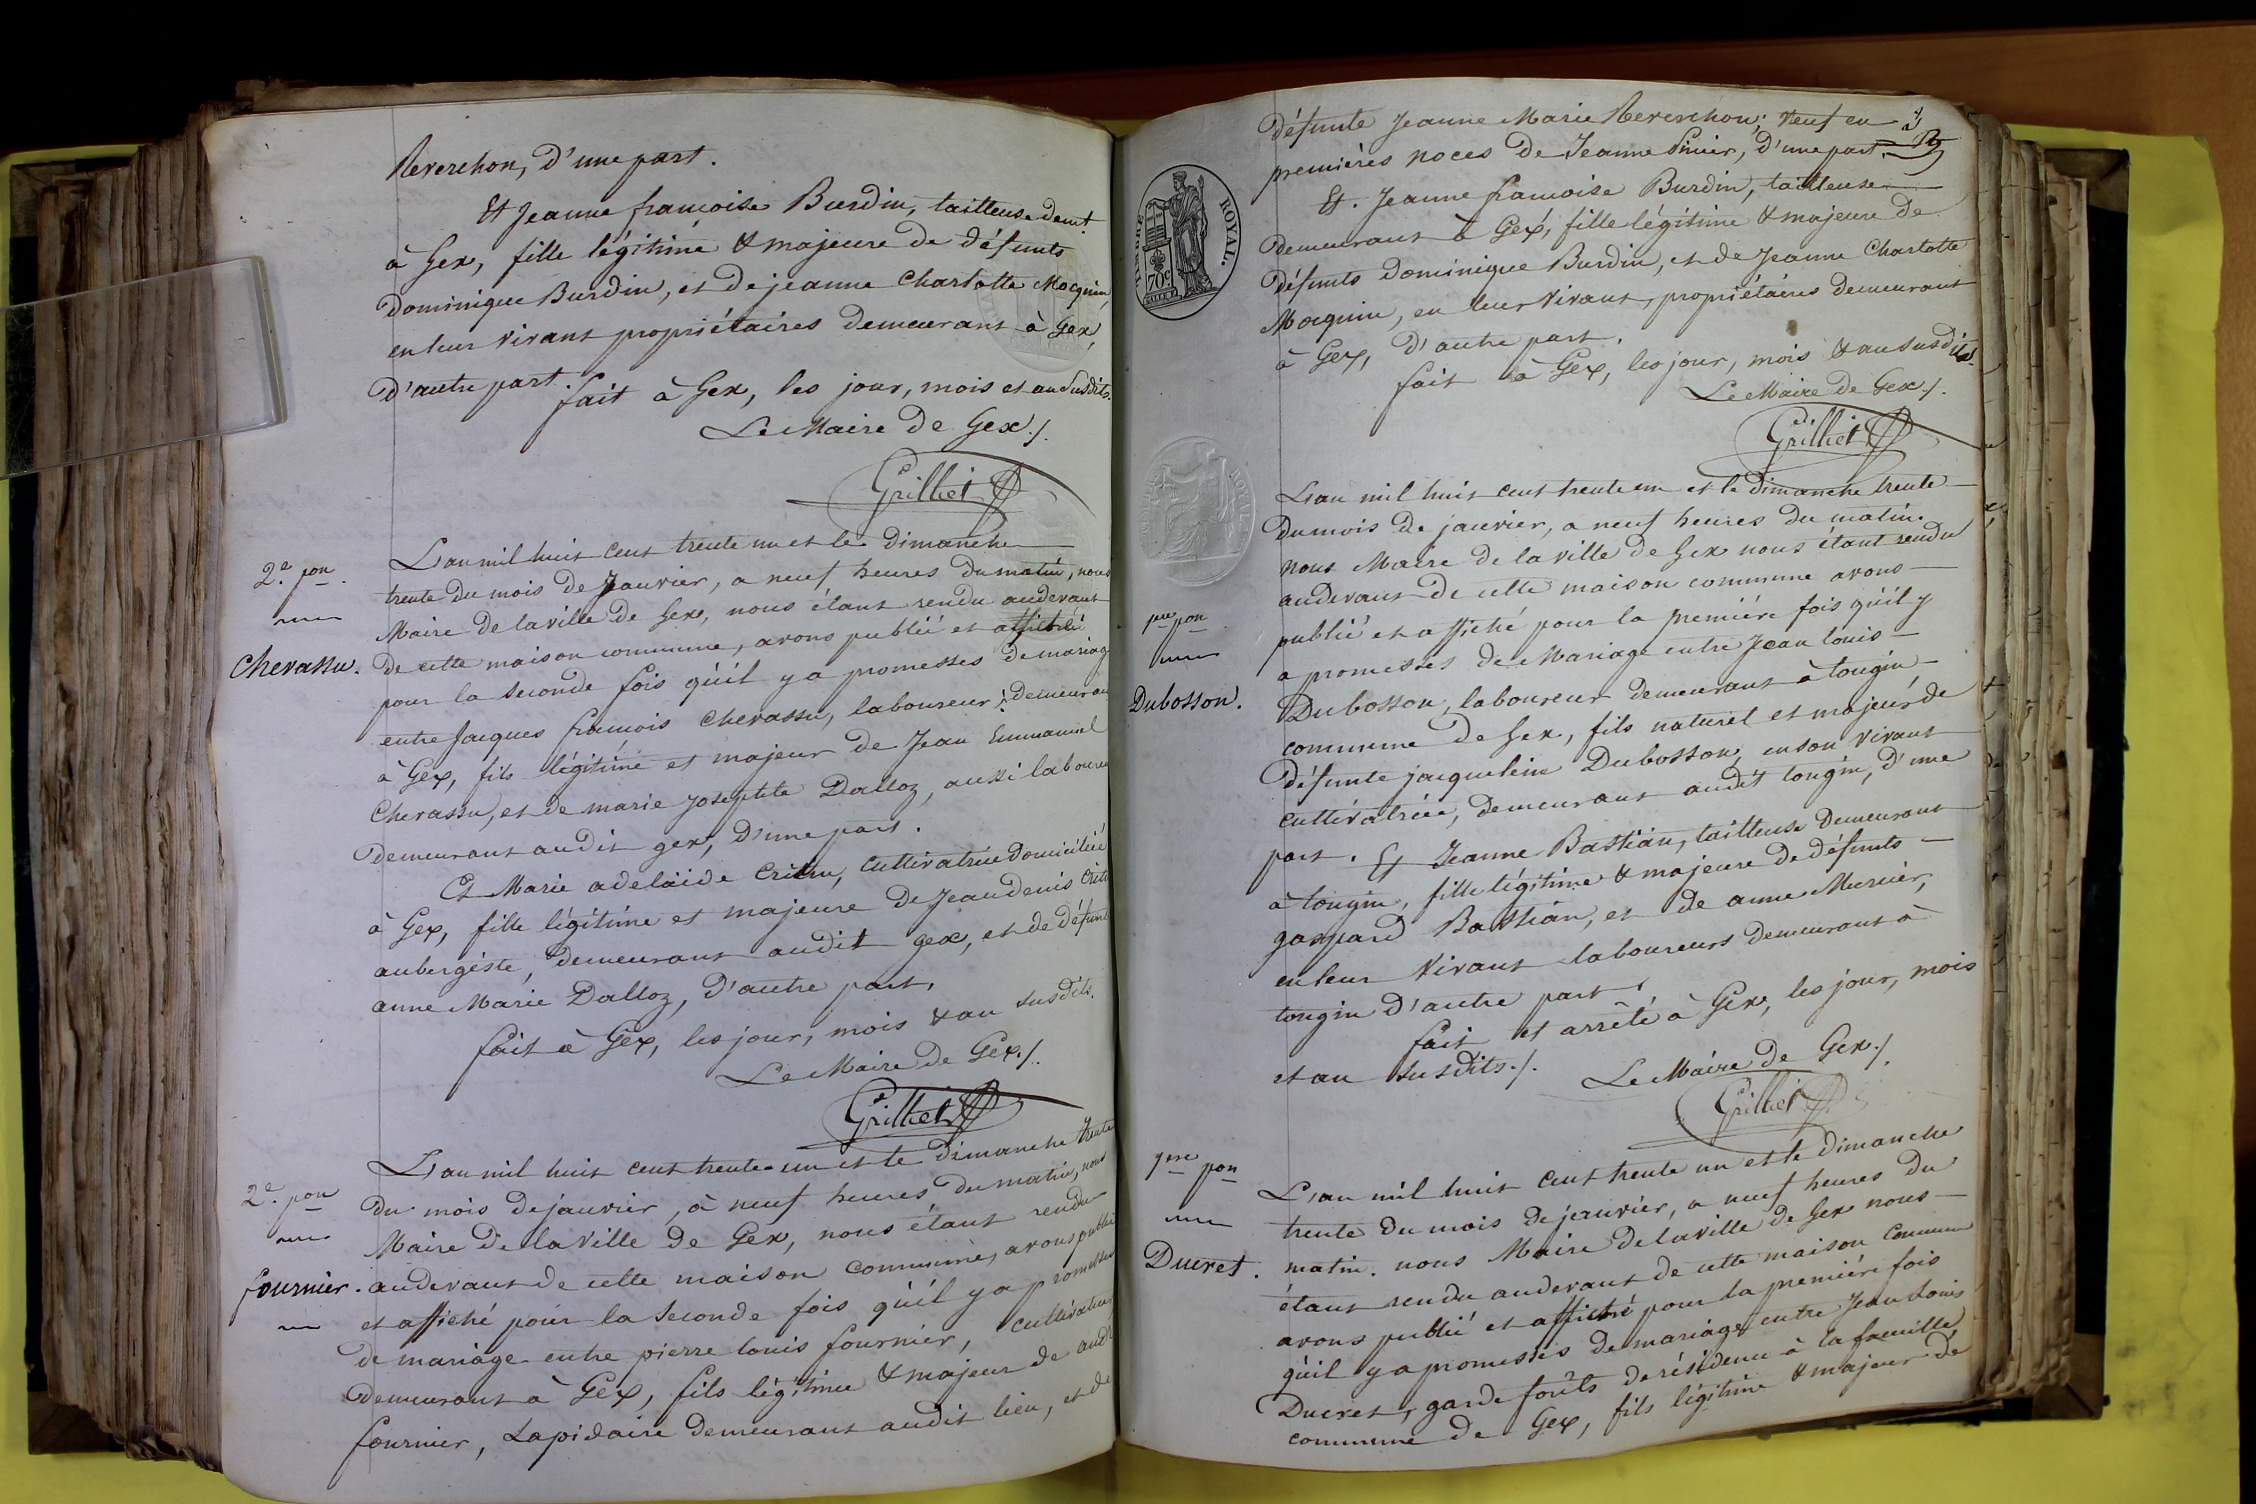 Reverchon, d'une part.
Et Jeanne françoise Burdin, tailleuse demt
à Gex, fille légitime & majeure de défunts
Dominique Burdin, et de jeanne Charlotte Mocquin,
en leur vivant propriétaires demeurant à Gex,
d'autre part.
fait à Gex, les jour, mois et an susdits.
Le Maire de Gex ./.
Grilliet
2e. pon
Chevassu.
L'an mil huit cent trente un et le dimanche
trente du mois de Janvier, a neuf heures du matin, nous
Maire de la ville de Gex, nous étant rendu audevant
de cette maison commune, avons publié et affiché
pour la seconde fois qu'il y a promesses de mariage
entre Jacques francois Chevassu, laboureur, demeurant
à Gex, fils légitime et majeur de Jean Emmanuel
Chevassu, et de marie josephte Dalloz, aussi laboureur
demeurant audit gex, d'une part.
Et Marie adelaïde Critin, cultivatrice domiciliée
à Gex, fille légitime et majeure de Jean denis
aubergiste, demeurant audit gex, et de défunte
anne Marie Dalloz, d'autre part,
fait à Gex, les jour, mois & an susdits.
Le Maire de Gex ./.
Grilliet
2e. pon
fournier.
L'an mil huit cent trente un et le dimanche trente
du mois de janvier, à neuf heures du matin, nous
Maire de la Ville de Gex, nous étant rendu
audevant de cette maison commune, avons publié
et affiché pour la seconde fois qu'il y a promesses
de mariage entre pierre louis fournier, cultivateur
demeurant à Gex, fils légitime & majeur de
fournier, Lapidaire demeurant audit lieu, et de
3
TIMBRE ROYAL.
70c
défunte Jeanne Marie Reverchon; veuf en
premières noces de Jeanne, d'une part.
Et. Jeanne francoise Burdin, tailleuse
demeurant à Gex, fille légitime & majeure de
défunts Dominique Burdin, et de Jeanne Charlotte
Mocquin, en leur vivant, propriétaires demeurant
à Gex, d'autre part.
fait à Gex, les jour, mois & an susdits.
Le Maire de Gex ./.
Grilliet
1ere pon
Dubosson.
L'an mil huit cent trente un et le dimanche trente
du mois de janvier, a neuf heures du matin.
nous Maire de la ville de Gex nous étant rendu
audevant de cette maison commune avons
publié et affiché pour la première fois qu'il y
a promesses de Mariage entre Jean louis
Dubosson, laboureur demeurant à tougin
commune de Gex, fils naturel et majeur de
défunte jacqueleine Dubosson, en son vivant
cultivatrice, demeurant audit tougin, d'une
part. Et Jeanne Bastian, tailleuse demeurant
à tougin, fille légitime & majeure de défunts
gaspard Bastian, et de anne Mercier,
en leur vivant laboureurs demeurant à
tougin d'autre part.
fait et arrêté à Gex, les jour, mois
et an susdits ./.
Le Maire de Gex ./.
Grilliet
1ere pon
Ducret.
L'an mil huit cent trente un et le dimanche
trente du mois de janvier, a neuf heures du
matin. nous Maire de la ville de Gex nous
étant rendu audevant de cette maison commune
avons publié et affiché pour la première fois
qu'il y a promesses de mariage entre Jean Louis
Ducret, garde forêts de résidence à la faucille
commune de Gex, fils légitime & majeur de